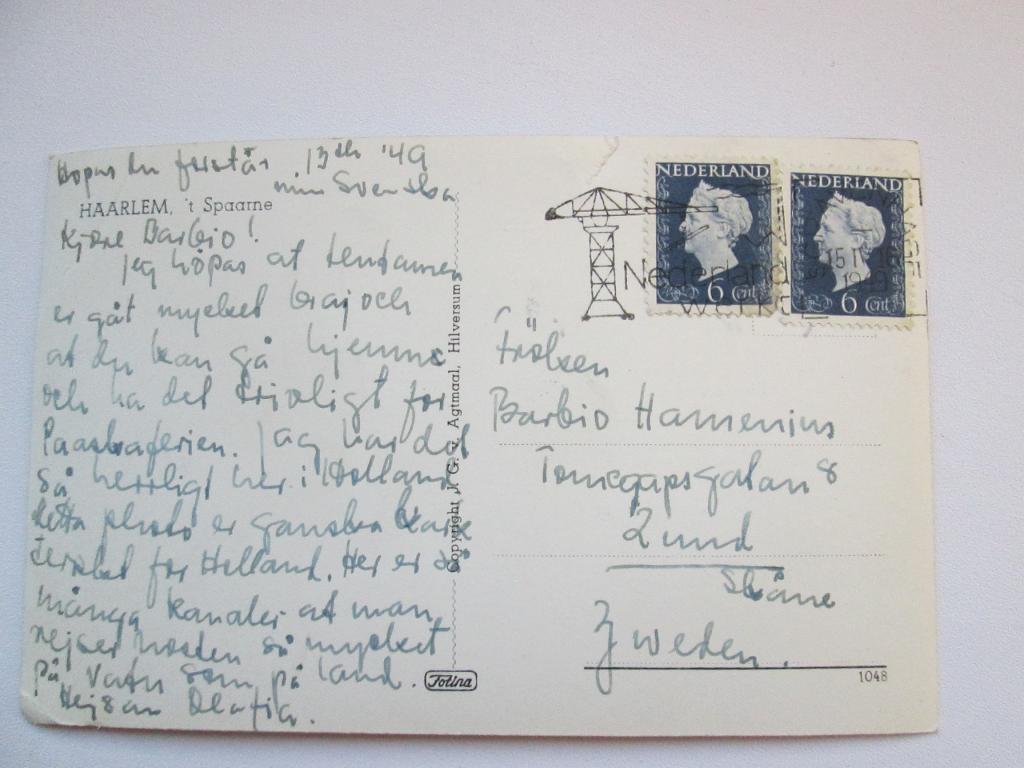 Hopas du förstår 13de '49
min Svenska
HAARLEM, 't Spaarne
Kjære Barbro!
Jeg hôpas at tentamen
er gåt mycket bra, och
at du kan gå hjemme
och ha det trivligt for
Paaskaferien. Jag har det
så herrligt her i Holland
detta photo er ganska karak
teristet for Holland. Her er så
många kanaler at man
rejser nesten så mycket
på vatn som på land.
Hejsan
Copyright J. G. v. Agtmaal, Hilversum
Folina
NEDERLAND
6 cent
NEDERLAND
6 cent
Nederland
15 IV 16
1949
Fröken
Barbro Hamenius
Tomegapsgatan 8
Lund
Skåne
Zweden.
1048